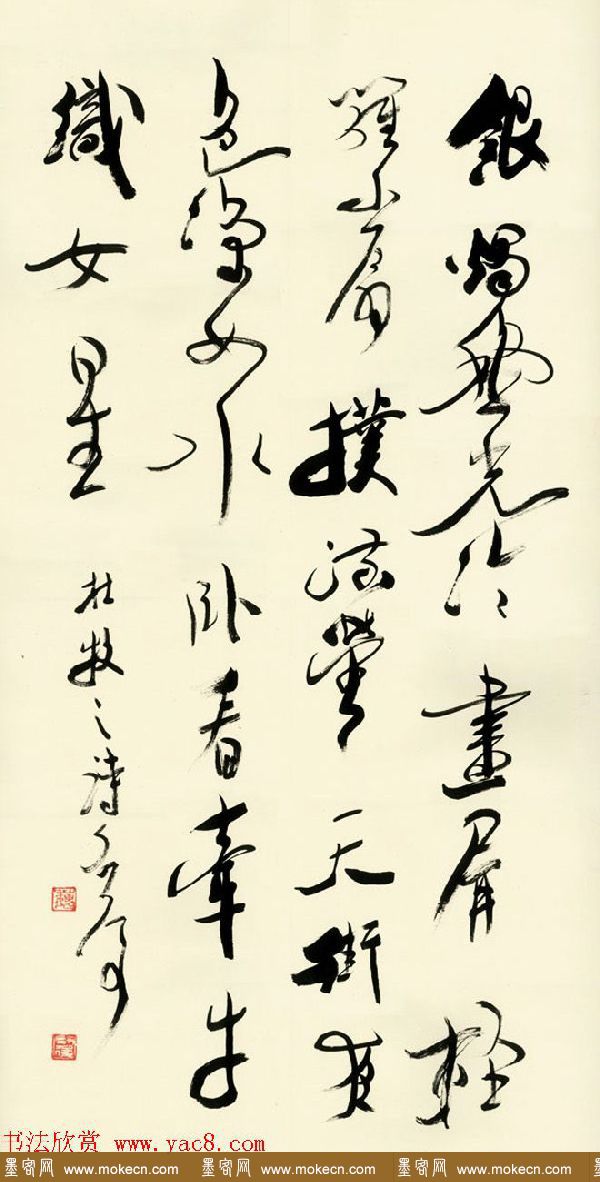 銀燭秋光冷畫屏輕
羅小扇撲流螢天街夜
色涼如水卧看牽牛
織女星
杜牧之詩
书法欣赏 www.yac8.com
墨客网 www.mokecn.com 墨客网 www.mokecn.com 墨客网 www.mokecn.com